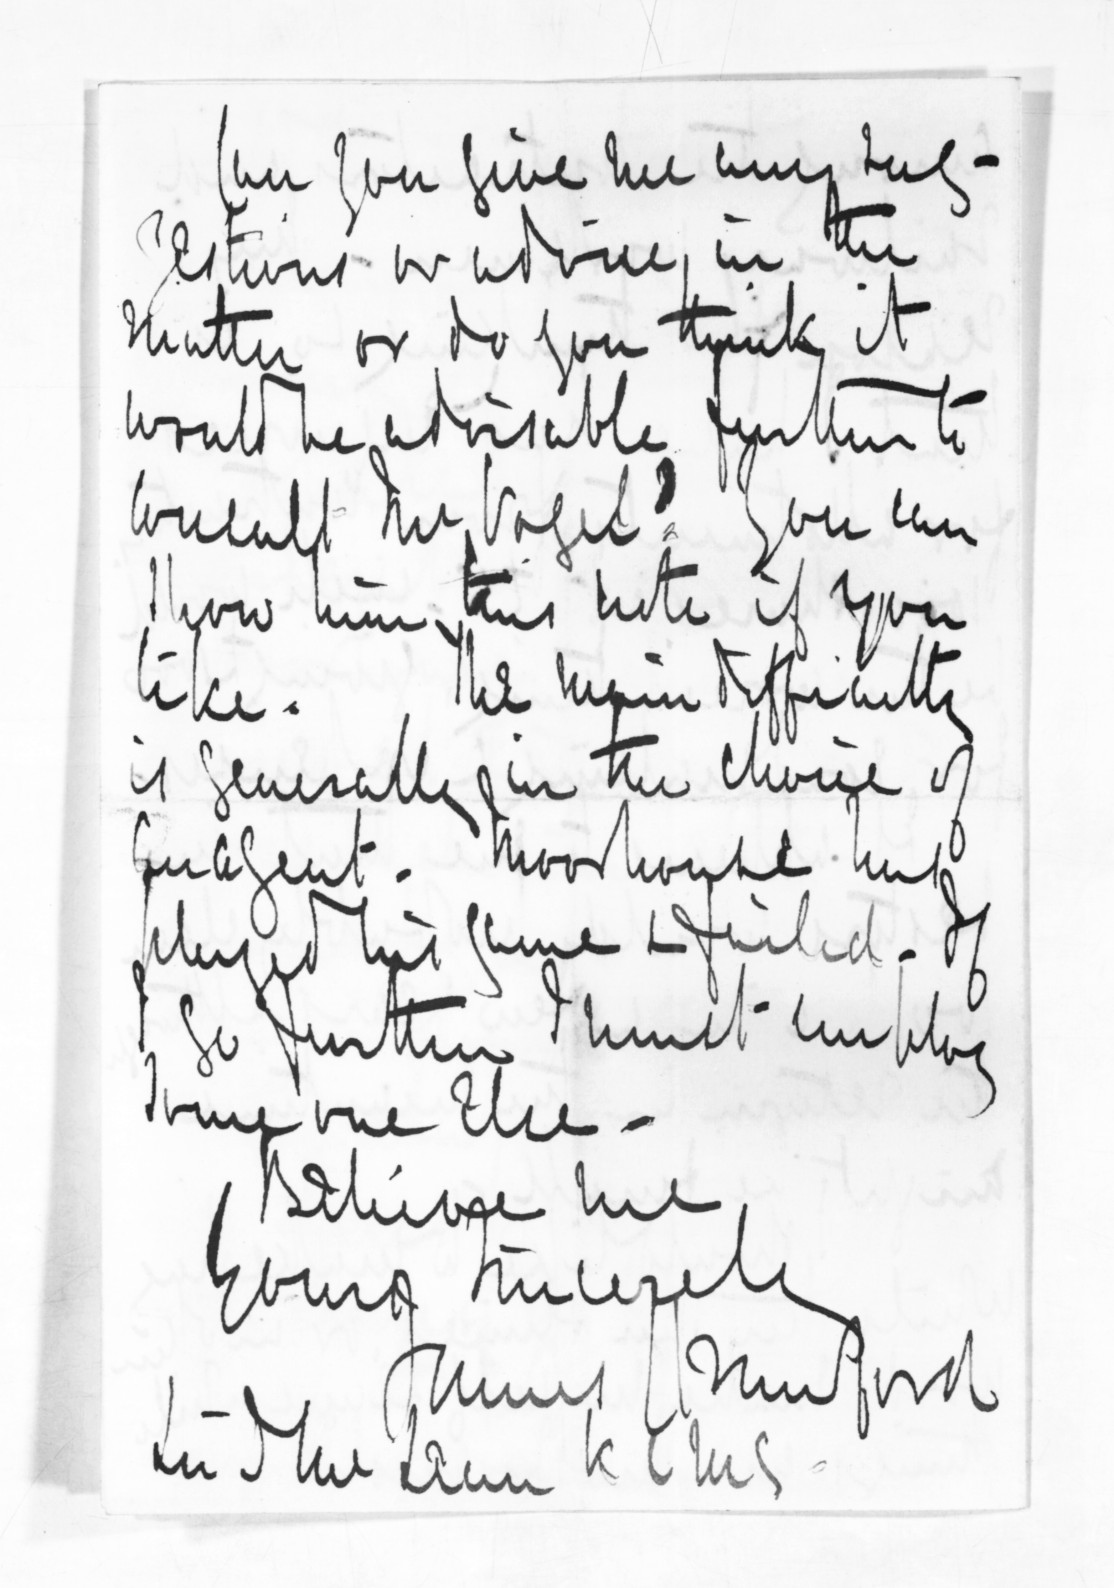 Can you give me any sug-
gestions or advice, in the
matter or do you think it
would be advisable further to
consult Mr Vogel? You can
show him this note if you
like. The main difficulty
is generally in the choice of
an agent. Moorhouse has
played his game & failed. If
I go further I must employ
some one else.
Believe me
Yours sincerely
James Mudford
Sir D McLean K C M G